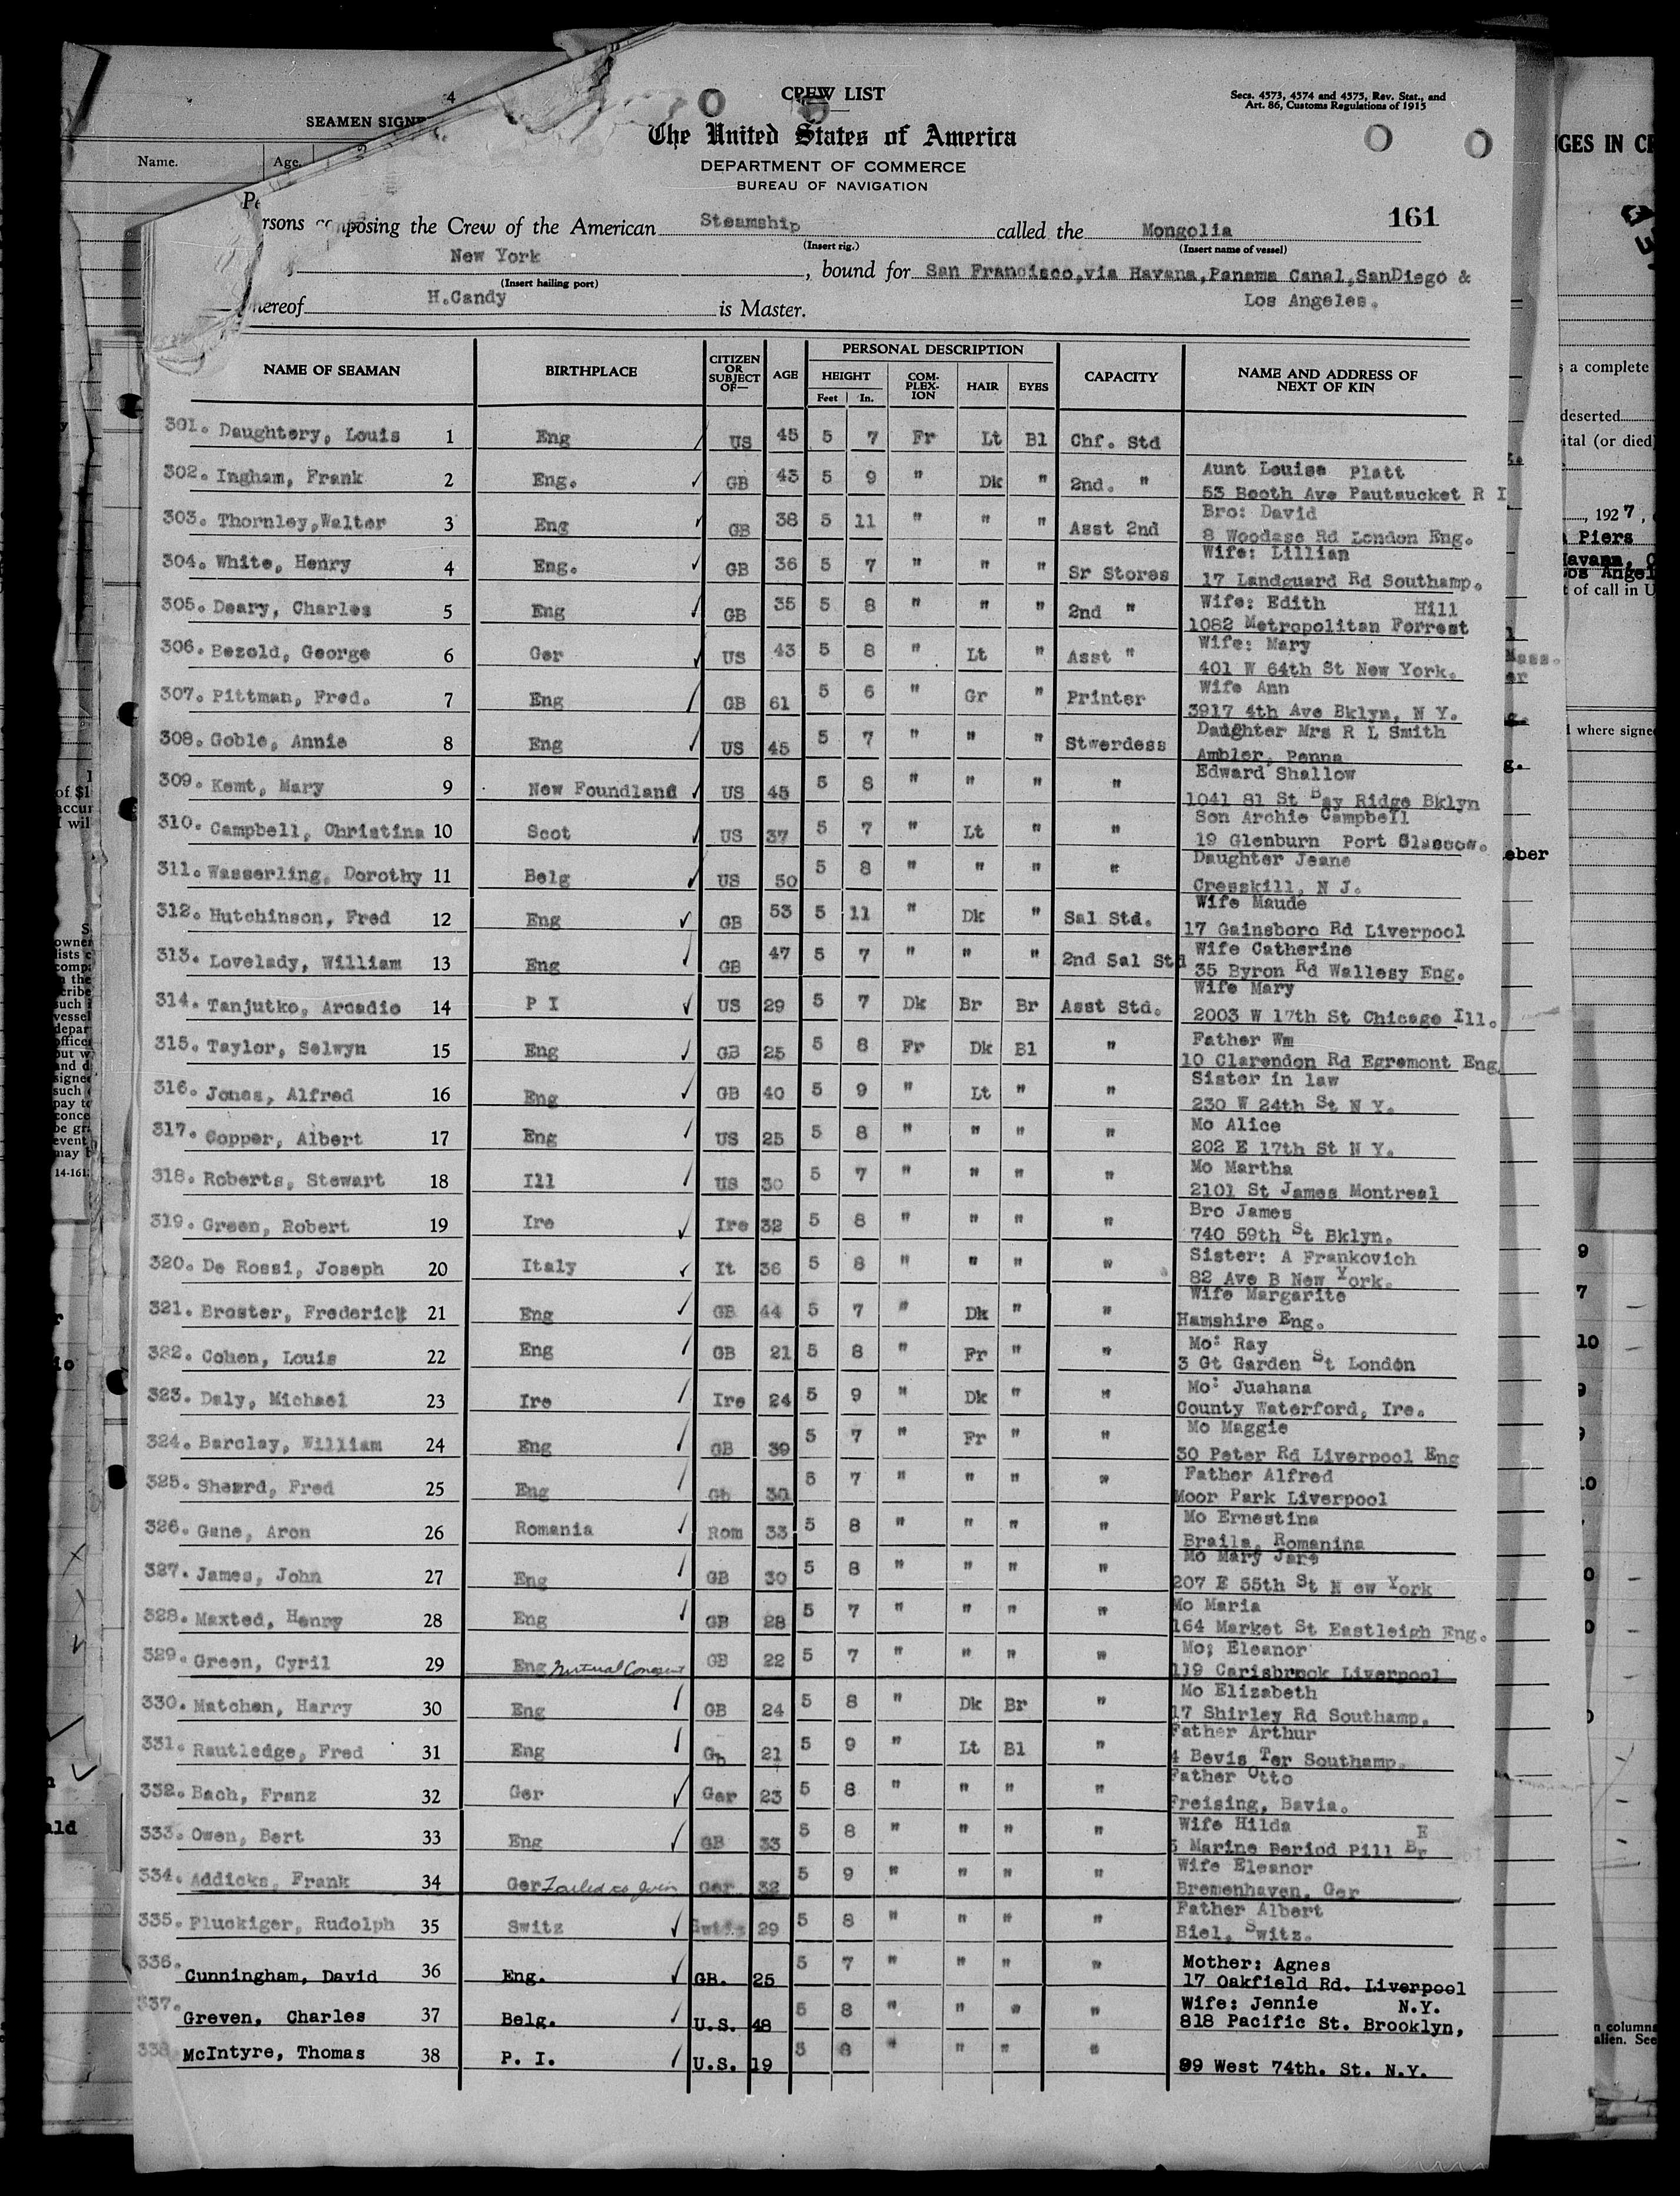 4
SEAMEN SIGNE
Name. Age.
CREW LIST
Secs. 4573, 4574 and 4575, Rev. Stat., and
Art. 86, Customs Regulations of 1915
The United States of America
DEPARTMENT OF COMMERCE
BUREAU OF NAVIGATION
161
rsons composing the Crew of the American Steamship called the Mongolia
(Insert rig.) (Insert name of vessel)
New York, bound for San Francisco,via Havana,Panama Canal,SanDiego &
(Insert hailing port)
hereof H.Candy is Master. Los Angeles.
NAME OF SEAMAN BIRTHPLACE CITIZEN OR SUBJECT OF— AGE PERSONAL DESCRIPTION HEIGHT Feet In. COM-PLEX-ION HAIR EYES CAPACITY NAME AND ADDRESS OF NEXT OF KIN
301. Daughtery, Louis 1 Eng US 45 5 7 Fr Lt Bl Chf. Std
302. Ingham, Frank 2 Eng. GB 43 5 9 " Dk " 2nd. " Aunt Louise Platt
53 Booth Ave Pautaucket R I
303. Thornley,Walter 3 Eng GB 38 5 11 " " " Asst 2nd Bro: David
8 Woodase Rd London Eng.
304. White, Henry 4 Eng. GB 36 5 7 " " " Sr Stores Wife: Lillian
17 Landguard Rd Southamp.
305. Deary, Charles 5 Eng GB 35 5 8 " " " 2nd " Wife: Edith Hill
1082 Metropolitan Forrest
306. Bezold, George 6 Ger US 43 5 8 " Lt " Asst " Wife: Mary
401 W 64th St New York.
307. Pittman, Fred. 7 Eng GB 61 5 6 " Gr " Printer Wife Ann
3917 4th Ave Bklyn, N Y.
308. Goble, Annie 8 Eng US 45 5 7 " " " Stwerdess Daughter Mrs R L Smith
Ambler, Penna
309. Kemt, Mary 9 New Foundland US 45 5 8 " " " " Edward Shallow
1041 81 St Bay Ridge Bklyn
310. Campbell, Christina 10 Scot US 37 5 7 " Lt " " Son Archie Campbell
19 Glenburn Port Glascow.
311. Wasserling, Dorothy 11 Belg US 50 5 8 " " " " Daughter Jeane
Cresskill, N J.
312. Hutchinson, Fred 12 Eng GB 53 5 11 " Dk " Sal Std. Wife Maude
17 Gainsboro Rd Liverpool
313. Lovelady, William 13 Eng GB 47 5 7 " " " 2nd Sal Std Wife Catherine
35 Byron Rd Wallesy Eng.
314. Tanjutko, Arcadio 14 P I US 29 5 7 Dk Br Br Asst Std. Wife Mary
2003 W 17th St Chicago Ill.
315. Taylor, Selwyn 15 Eng GB 25 5 8 Fr Dk Bl " Father Wm
10 Clarendon Rd Egremont Eng.
316. Jones, Alfred 16 Eng GB 40 5 9 " Lt " " Sister in law
230 W 24th St N Y.
317. Copper, Albert 17 Eng US 25 5 8 " " " " Mo Alice
202 E 17th St N Y.
318. Roberts, Stewart 18 Ill US 30 5 7 " " " " Mo Martha
2101 St James Montreal
319. Green, Robert 19 Ire Ire 32 5 8 " " " " Bro James
740 59th St Bklyn.
320. De Rossi, Joseph 20 Italy It 36 5 8 " " " " Sister: A Frankovich
82 Ave B New York.
321. Broster, Frederick 21 Eng GB 44 5 7 " Dk " " Wife Margarite
Hamshire Eng.
322. Cohen, Louis 22 Eng GB 21 5 8 " Fr " " Mo: Ray
3 Gt Garden St London
323. Daly, Michael 23 Ire Ire 24 5 9 " Dk " " Mo: Juahana
County Waterford, Ire.
324. Barclay, William 24 Eng GB 39 5 7 " Fr " " Mo Maggie
30 Peter Rd Liverpool Eng
325. Sheard, Fred 25 Eng Gb 30 5 7 " " " " Father Alfred
Moor Park Liverpool
326. Gane, Aron 26 Romania Rom 33 5 8 " " " " Mo Ernestina
Braila, Romanina
327. James, John 27 Eng GB 30 5 8 " " " " Mo Mary Jare
207 E 55th St N ew York
328. Maxted, Henry 28 Eng GB 28 5 7 " " " " Mo Maria
164 Market St Eastleigh Eng.
329. Green, Cyril 29 Eng Mutual Consent GB 22 5 7 " " " " Mo; Eleanor
119 Carisbrook Liverpool
330. Matchen, Harry 30 Eng GB 24 5 8 " Dk Br " Mo Elizabeth
17 Shirley Rd Southamp.
331. Rautledge, Fred 31 Eng Gb 21 5 9 " Lt Bl " Father Arthur
4 Bevis Ter Southamp.
332. Bach, Franz 32 Ger Ger 23 5 8 " " " " Father Otto
Freising, Bavia.
333. Owen, Bert 33 Eng GB 33 5 8 " " " " Wife Hilda E
5 Marine Period Pill Br
334. Addicks, Frank 34 Ger Failed to Join Ger 32 5 9 " " " " Wife Eleanor
Bremenhaven, Ger
335. Fluckiger, Rudolph 35 Switz Switz 29 5 8 " " " " Father Albert
Biel, Switz.
336. Cunningham, David 36 Eng. GB. 25 5 7 " " " " Mother: Agnes
17 Oakfield Rd. Liverpool
337. Greven, Charles 37 Belg. U.S. 48 5 8 " " " " Wife: Jennie N.Y.
818 Pacific St. Brooklyn,
338. McIntyre, Thomas 38 P. I. U.S. 19 5 8 " " " "
99 West 74th. St. N.Y.
GES IN CR
s a complete
deserted
ital (or died)
, 1927,
Piers
Havana, C
os Angel
t of call in U
where signe